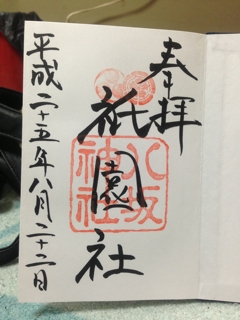 奉拝
祇園社
八坂神社
平成二十五年八月二十二日